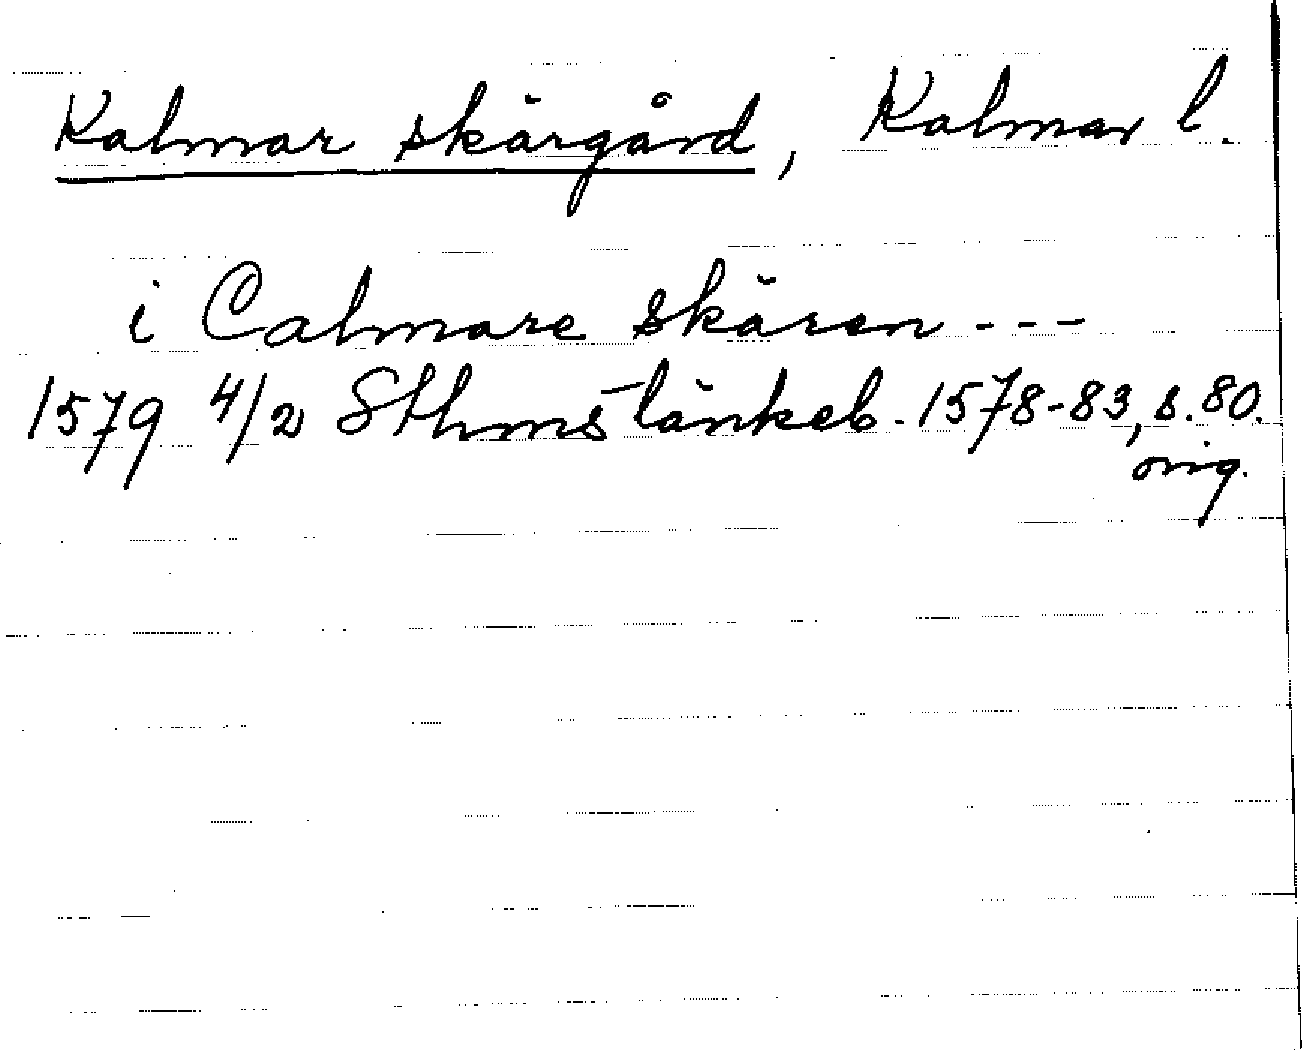 Kalmar skärgård, Kalmar l.
i Calmare skären - - -
1579 4/2 Sthms tänkeb. 1578-83, s. 80.
orig.